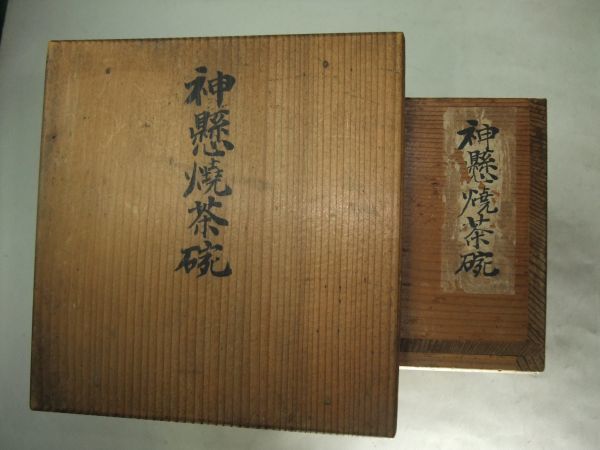 神懸焼茶碗
神懸焼茶碗